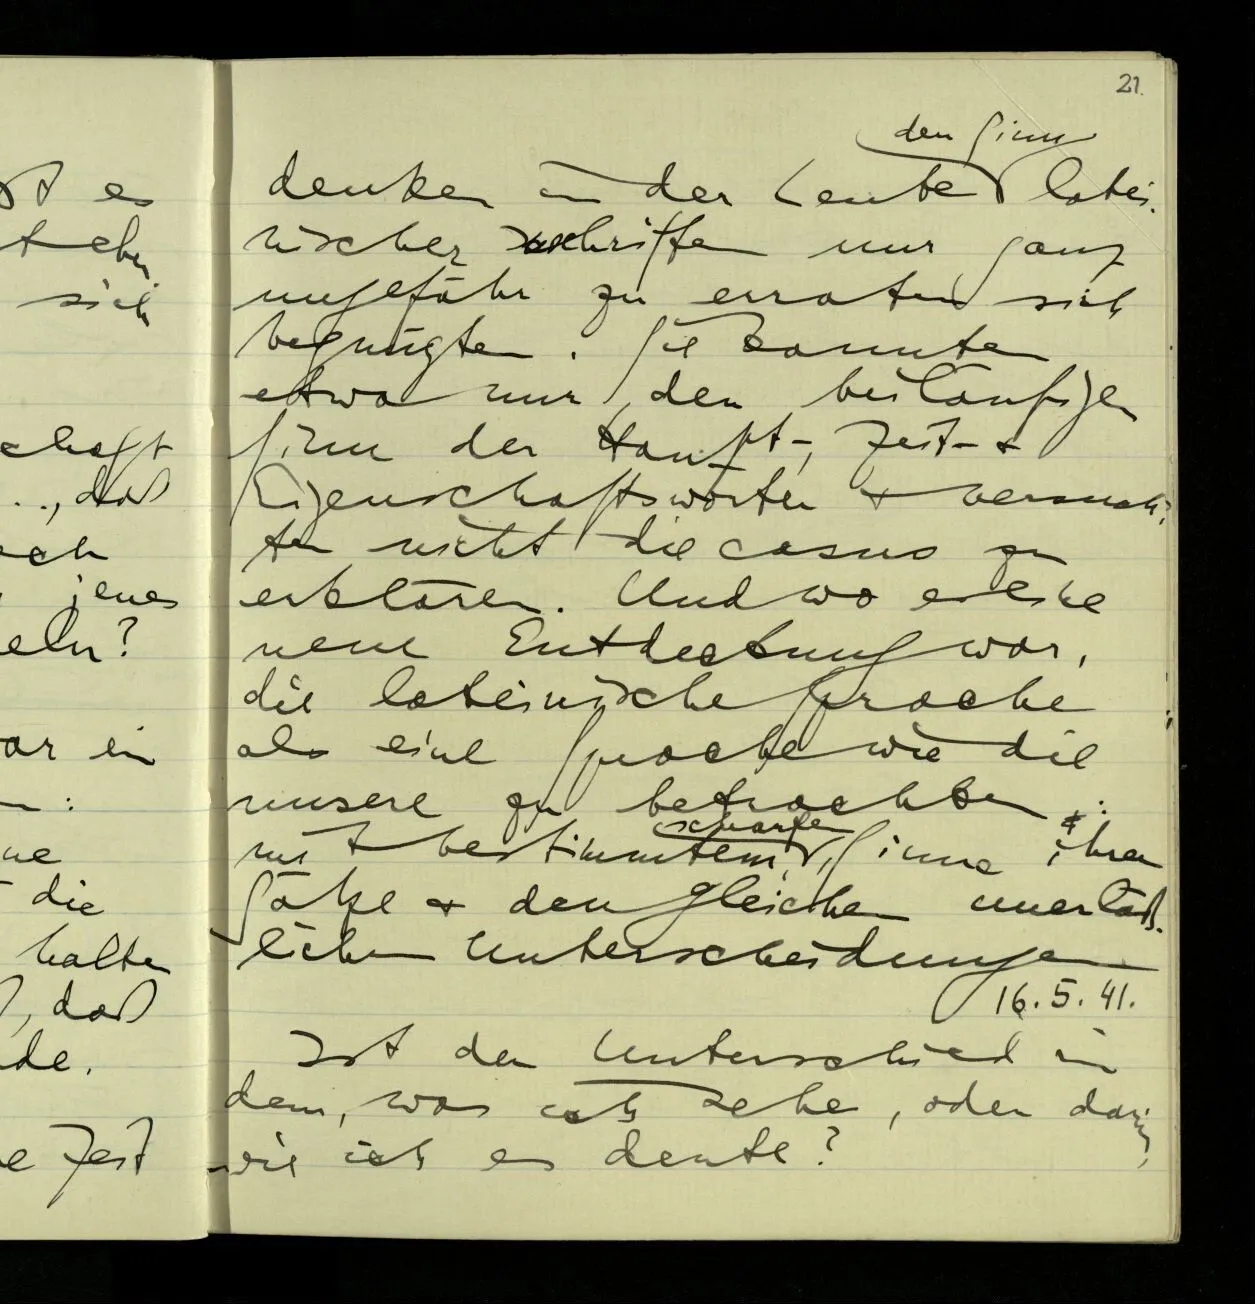 st es
sich
chaft
..., daß
och
jenes
eln?
ar ein
ne
die
halten
, daß
de.
e Zeit
21.
den Sinn
denken an der Leute latei-
nischer Schriften nur ganz
ungefähr zu erraten sich
begnügten. Sie kannten
etwa nur den beiläufigen
Sinn der Haupt-, Zeit- &
Eigenschaftswörter & versuch-
ten nicht die casus zu
erklären. Und wo es eine
neue Entdeckung war,
die lateinische Sprache
als eine Sprache wie die
unsere zu betrachten:
scharfen
mit bestimmtem, Sinne ihrer
Sätze & den gleichen unerläß-
lichen Unterscheidungen
16.5.41.
Ist der Unterschied in
dem, was ich sehe, oder darin,
wie ich es deute?